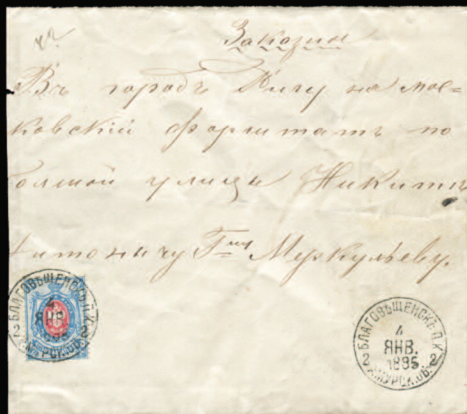 Заказное
Въ городъ Ригу на Мос=
ковскій форштатъ по
болшой улицы Никитѣ
Г-ну Меркульеву.
БЛАГОВѢЩЕНСКЪ П.К.
4
ЯНВ.
1895
АМУРСК.ОБ.
БЛАГОВѢЩЕНСКЪ П.К.
2 4 2
ЯНВ.
1895
АМУРСК.ОБ.